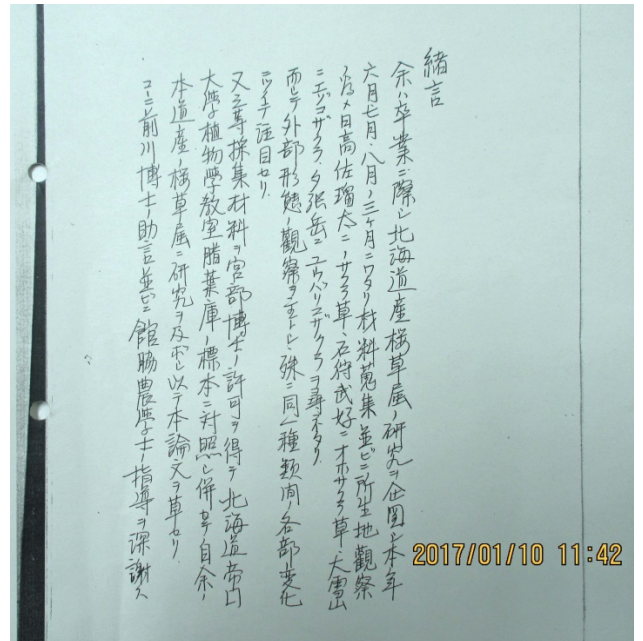 緒言
余ハ卒業ニ際シ北海道産桜草属ノ研究ヲ企図シ本年
六月七月八月ノ三ヶ月ニワタリ材料蒐集並ビニ所生地観察
ノタメ日高佐瑠太ニサクラ草、石狩武好ニオホサクラ草、大雪山
ニエゾコザクラ、夕張岳ニユウバリコザクラヲ尋ネタリ
而シテ外部形態ノ観察ヲ主トシ殊ニ同一種類間ノ各部変化
ニツイテ注目セリ
又之等採集材料ヲ宮部博士ノ許可ヲ得テ北海道帝国
大学植物学教室腊葉庫ノ標本ニ対照シ併セテ自余ノ
本道産ノ桜草属ニ研究ヲ及ボシ以テ本論文ヲ草セリ
コヽニ前川博士ノ助言並ビニ館脇農学士ノ指導ヲ深謝ス
2017/01/10 11:42